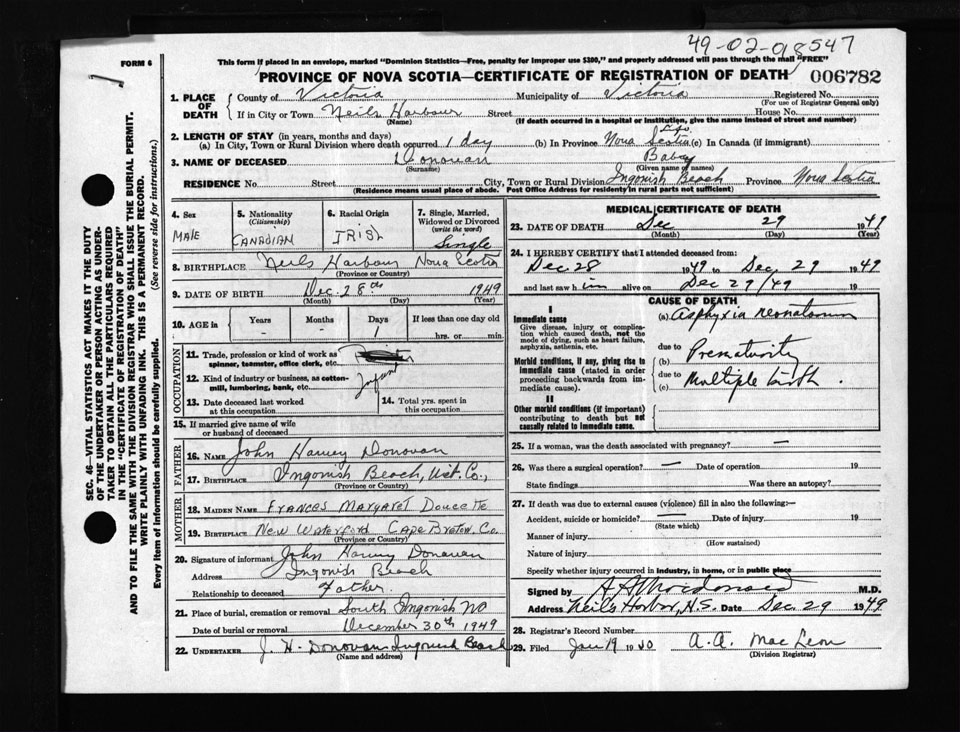 49-02-98547
FORM 6
This form if placed in an envelope, marked "Dominion Statistics—Free, penalty for improper use $300," and properly addressed will pass through the mail "FREE"
PROVINCE OF NOVA SCOTIA—CERTIFICATE OF REGISTRATION OF DEATH 006782
1. PLACE OF DEATH
County of Victoria Municipality of Victoria Registered No.
(For use of Registrar General only)
If in City or Town Neils Harbour Street House No.
(Name) (If death occurred in a hospital or institution, give the name instead of street and number)
2. LENGTH OF STAY (in years, months and days)
(a) In City, Town or Rural Division where death occurred 1 day (b) In Province Nova Scotia Life (c) In Canada (if immigrant)
3. NAME OF DECEASED Donovan Baby
(Surname) (Given name or names)
RESIDENCE No Street City, Town or Rural Division Ingonish Beach Province Nova Scotia
(Residence means usual place of abode. Post Office Address for residents in rural parts not sufficient)
4. Sex
MALE
5. Nationality
(Citizenship)
CANADIAN
6. Racial Origin
IRISH
7. Single, Married, Widowed or Divorced
(write the word)
Single
8. BIRTHPLACE Neils Harbour Nova Scotia
(Province or Country)
9. DATE OF BIRTH Dec. 28th 1949
(Month) (Day) (Year)
10. AGE in
Years Months Days If less than one day old
- - 1 hrs. or min.
OCCUPATION
11. Trade, profession or kind of work as spinner, teamster, office clerk, etc.
12. Kind of industry or business, as cotton-mill, lumbering, bank, etc. Infant
13. Date deceased last worked at this occupation
14. Total yrs. spent in this occupation
15. If married give name of wife or husband of deceased
FATHER
16. NAME John Harvey Donovan
17. BIRTHPLACE Ingonish Beach, Vict. Co.,
(Province or Country)
MOTHER
18. MAIDEN NAME Frances Margaret Doucette
19. BIRTHPLACE New Waterford Cape Breton. Co.
(Province or Country)
20. Signature of informant John Harvey Donovan
Address Ingonish Beach
Relationship to deceased Father.
21. Place of burial, cremation or removal South Ingonish
Date of burial or removal December 30th 1949
22. UNDERTAKER J. H. Donovan Ingonish Beach
(Name and address)
MEDICAL CERTIFICATE OF DEATH
23. DATE OF DEATH Dec 29 1949
(Month) (Day) (Year)
24. I HEREBY CERTIFY that I attended deceased from:
Dec 28 1949 to Dec. 29 1949
and last saw him alive on Dec 29/49 19
CAUSE OF DEATH
I
Immediate cause
Give disease, injury or complication which caused death, not the mode of dying, such as heart failure, asphyxia, asthenia, etc.
(a) Asphyxia neonatorum
due to
Morbid conditions, if any, giving rise to immediate cause (stated in order proceeding backwards from immediate cause).
(b) Prematurity
due to
(c) Multiple birth.
II
Other morbid conditions (if important) contributing to death but not causally related to immediate cause.
25. If a woman, was the death associated with pregnancy? —
26. Was there a surgical operation? — Date of operation 19
State findings Was there an autopsy?
27. If death was due to external causes (violence) fill in also the following:—
Accident, suicide or homicide? Date of injury 19
(State which)
Manner of injury
(How sustained)
Nature of injury
Specify whether injury occurred in industry, in home, or in public place
Signed by A A Macdonald M.D.
Address Neils Harbor, N.S. Date Dec. 29 1949
28. Registrar's Record Number
29. Filed Jan 19 A. A. MacLeon
(Division Registrar)
SEC. 46—VITAL STATISTICS ACT MAKES IT THE DUTY
OF THE UNDERTAKER OR PERSON ACTING AS UNDER-
TAKER TO OBTAIN ALL THE PARTICULARS REQUIRED
IN THE "CERTIFICATE OF REGISTRATION OF DEATH"
AND TO FILE THE SAME WITH THE DIVISION REGISTRAR WHO SHALL ISSUE THE BURIAL PERMIT.
WRITE PLAINLY WITH UNFADING INK. THIS IS A PERMANENT RECORD.
Every item of information should be carefully supplied. (See reverse side for instructions.)